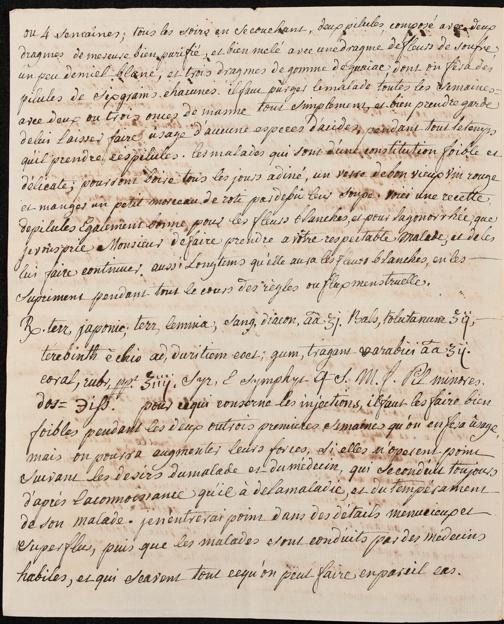 ou 4 semaines; tous les soirs en secouchant, deux pilules, composé avec deux
dragmes de mercure bien purifié, et bien melé avec une dragme de fleurs de soufre,
un peu de miel blanc, et trois dragmes de gomme de gaiac; dont on fera des
pilules de six grams. chacunes. il faut purger le malade toutes les semaines
avec deux ou trois onces de manne tout simplement, et bien prendre garde
de lui laisser faire usage d'aucune especes d'acides, pendant tout le temps,
qu'il prendre ces pilules. les malades qui sont d'une constitution foible et
délicate; pourront boire tous les jours a diné, un verre de bon vieux vin rouge
et manger un petit morceau de roti par dessu leur soupe. voici une recette
de pilules Egalement bonne pour les fleurs blanches, et pour la gonorrhée que
je vous prie Monsieur de faire prendre a vôtre respectable malade, et de les
lui faire continuer, aussi longtems qu'elle aura les fleurs blanches, en les
supriment pendant tout le cours des règles ou flux menstruelle.
℞. terr, japonic, terr, lemnia, sang, dracon, āā ʒj. Bals, tolutanum ʒij,
terebinth è chio ad, duritiem coct; gum, tragant varabici āā ʒij.
coral, rubr, ppt ʒiiij. Syr, E Symphyt q S. M. f. Pil
dos = ℈iſs pour ce qui conserne les injections, il faut les faire bien
foibles pendant les deux ou trois premieres semaines qu'on en fera usage,
mais on pourra augmenter leurs forces, si elles n'operent point
suivant les desirs du malade et du médecin, qui se conduit toujours
d'après la connoissance qu'il à de la maladie, et du tempérament
de son malade. je n'entrerai point dans des détails menucieux et
superflus, puis que les malades sont conduits par des médecins
habiles, et qui scavent tout ce qu'on peut faire en pareil cas.